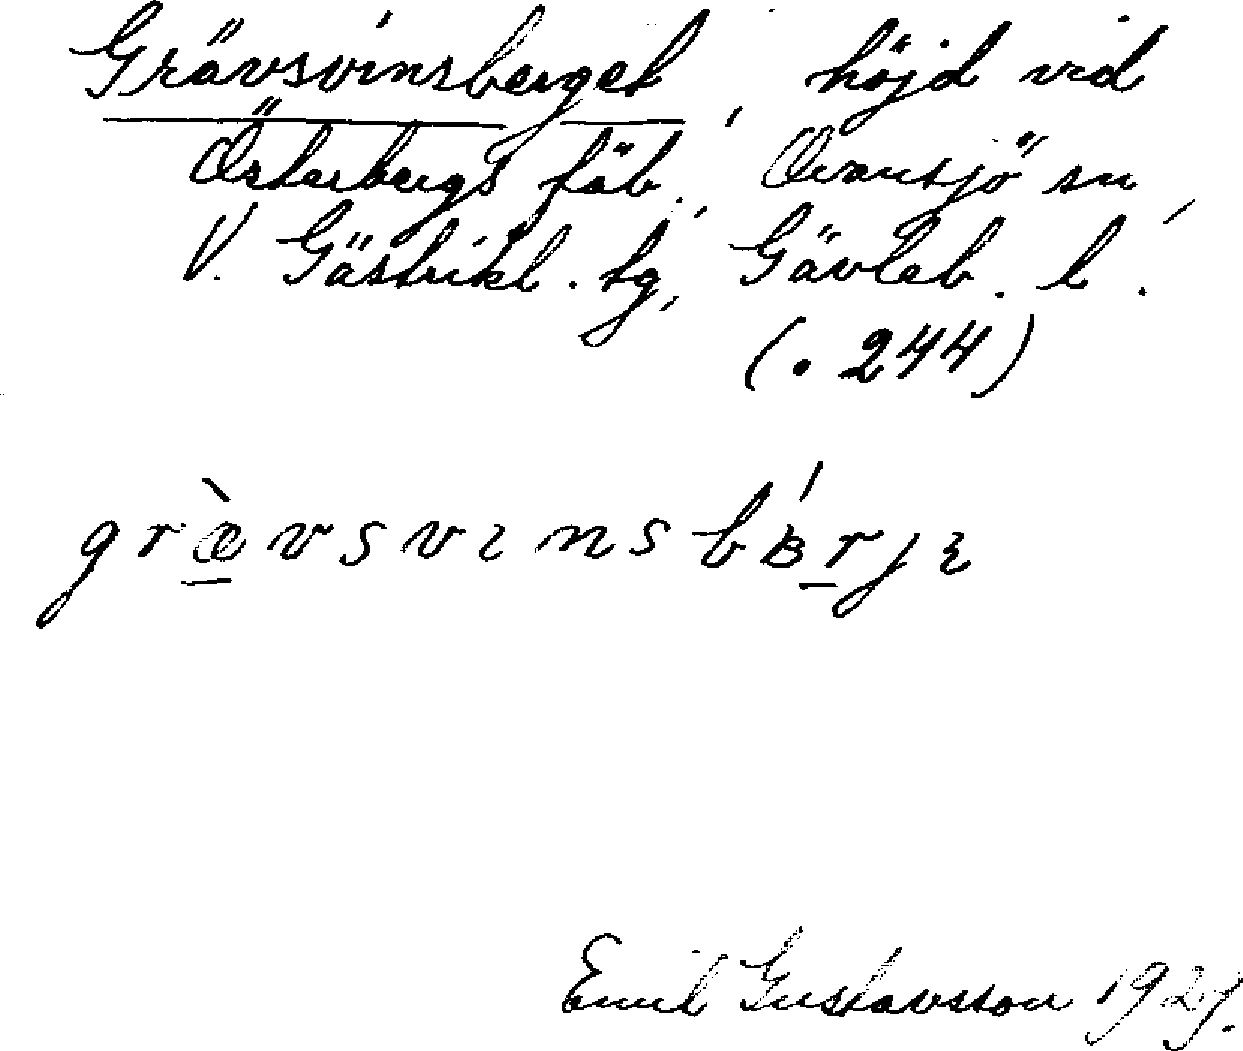 Grävsvinsberget, höjd vid
Österbergs fäb., Ovansjö sn,
V. Gästrikl. tg, Gävleb. l.
(. 244)
græ̀vsvɩnsbᴃ́rjɩ
Emil Gustavsson 1927.